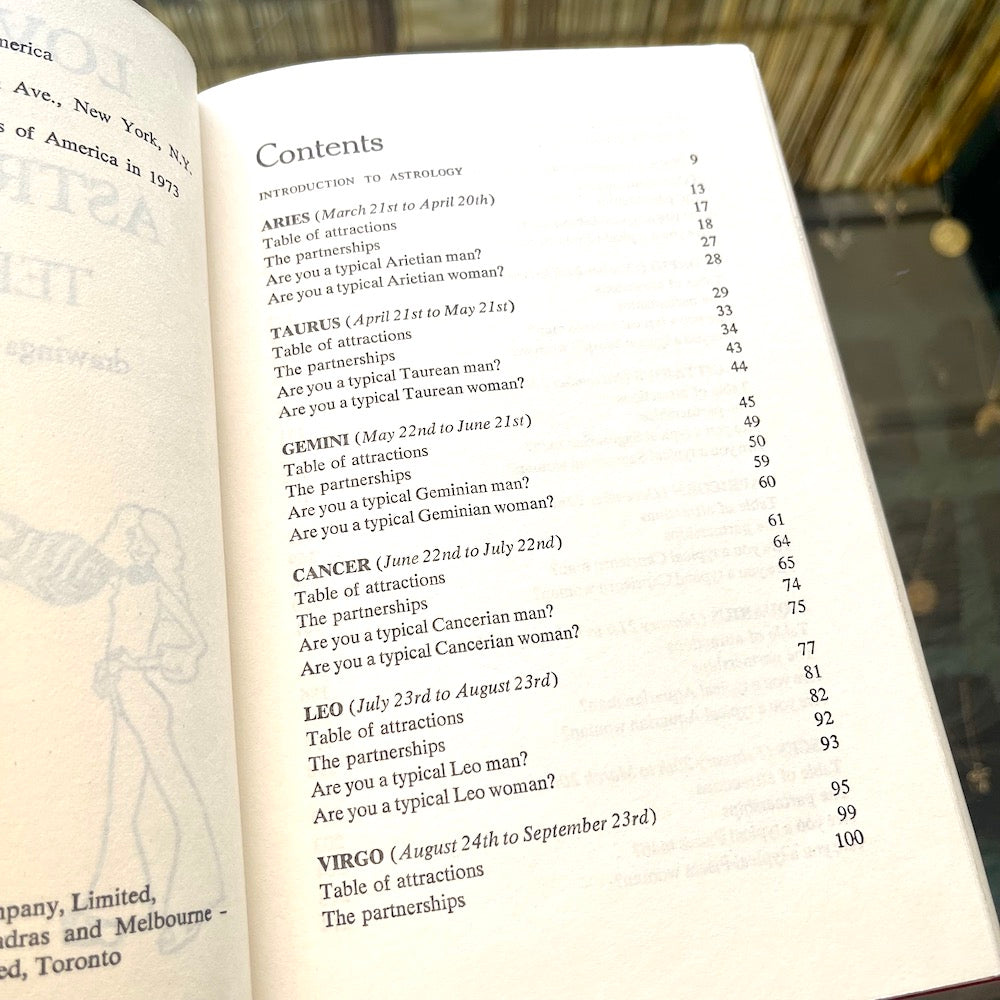 merica
Ave., New York, N.Y.
s of America in 1973
mpany, Limited,
adras and Melbourne -
ed, Toronto
Contents
INTRODUCTION TO ASTROLOGY 9
ARIES (March 21st to April 20th) 13
Table of attractions 17
The partnerships 18
Are you a typical Arietian man? 27
Are you a typical Arietian woman? 28
TAURUS (April 21st to May 21st) 29
Table of attractions 33
The partnerships 34
Are you a typical Taurean man? 43
Are you a typical Taurean woman? 44
GEMINI (May 22nd to June 21st) 45
Table of attractions 49
The partnerships 50
Are you a typical Geminian man? 59
Are you a typical Geminian woman? 60
CANCER (June 22nd to July 22nd) 61
Table of attractions 64
The partnerships 65
Are you a typical Cancerian man? 74
Are you a typical Cancerian woman? 75
LEO (July 23rd to August 23rd) 77
Table of attractions 81
The partnerships 82
Are you a typical Leo man? 92
Are you a typical Leo woman? 93
VIRGO (August 24th to September 23rd) 95
Table of attractions 99
The partnerships 100